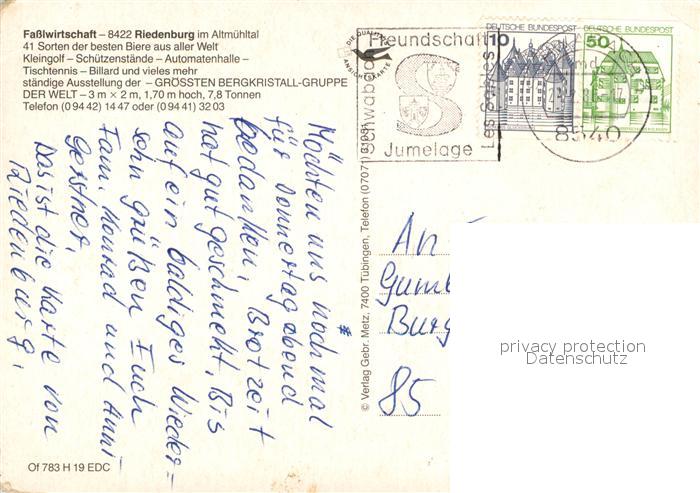 Faßlwirtschaft – 8422 Riedenburg im Altmühltal
41 Sorten der besten Biere aus aller Welt
Kleingolf – Schützenstände – Automatenhalle –
Tischtennis – Billard und vieles mehr
ständige Ausstellung der – GRÖSSTEN BERGKRISTALL-GRUPPE
DER WELT – 3 m × 2 m, 1,70 m hoch, 7,8 Tonnen
Telefon (0 94 42) 14 47 oder (0 94 41) 32 03
DIE QUALITÄTS
ANSICHTSKARTE
Freundschaft
Schwabach
Les
Jumelage
8540
DEUTSCHE BUNDESPOST
10
DEUTSCHE BUNDESPOST
50
Möchten uns nochmal
für Donnertag abend
bedanken, Brotzeit
hat gut geschmekt, Bis
auf ein baldiges Wieder=
sehn grüßen Euch
Fam. Konrad und Anni
Gerstner,
Das ist die Karte von
Riedenburg,
© Verlag Gebr. Metz, 7400 Tübingen, Telefon (07071) 81081
An
Burg
85
privacy protection
Datenschutz
Of 783 H 19 EDC